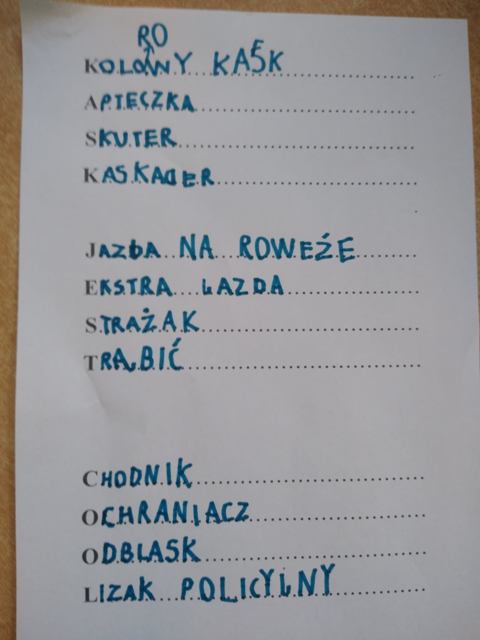 RO
KOLOWY KASK
APTECZKA
SKUTER
KASKADER
JAZDA NA ROWEŻE
EKSTRA JAZDA
STRAŻAK
TRĄBIĆ
CHODNIK
OCHRANIACZ
ODBLASK
LIZAK POLICYJNY